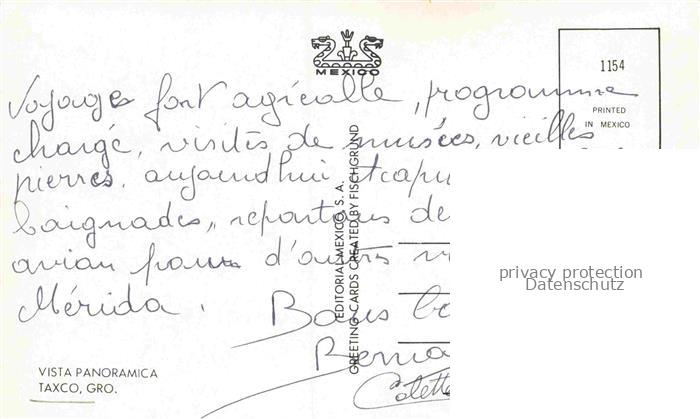 MEXICO
1154
PRINTED
IN MEXICO
Voyage fort agréable, programme
chargé, visites de musées, vieilles
pierres, aujourd'hui Acapu
baignades, repartons de
avion pour d'autres
Mérida.
Bons
Berna
Colette
EDITORIAL MEXICO, S. A.
GREETING CARDS CREATED BY FISCHGRUND
privacy protection
Datenschutz
VISTA PANORAMICA
TAXCO, GRO.